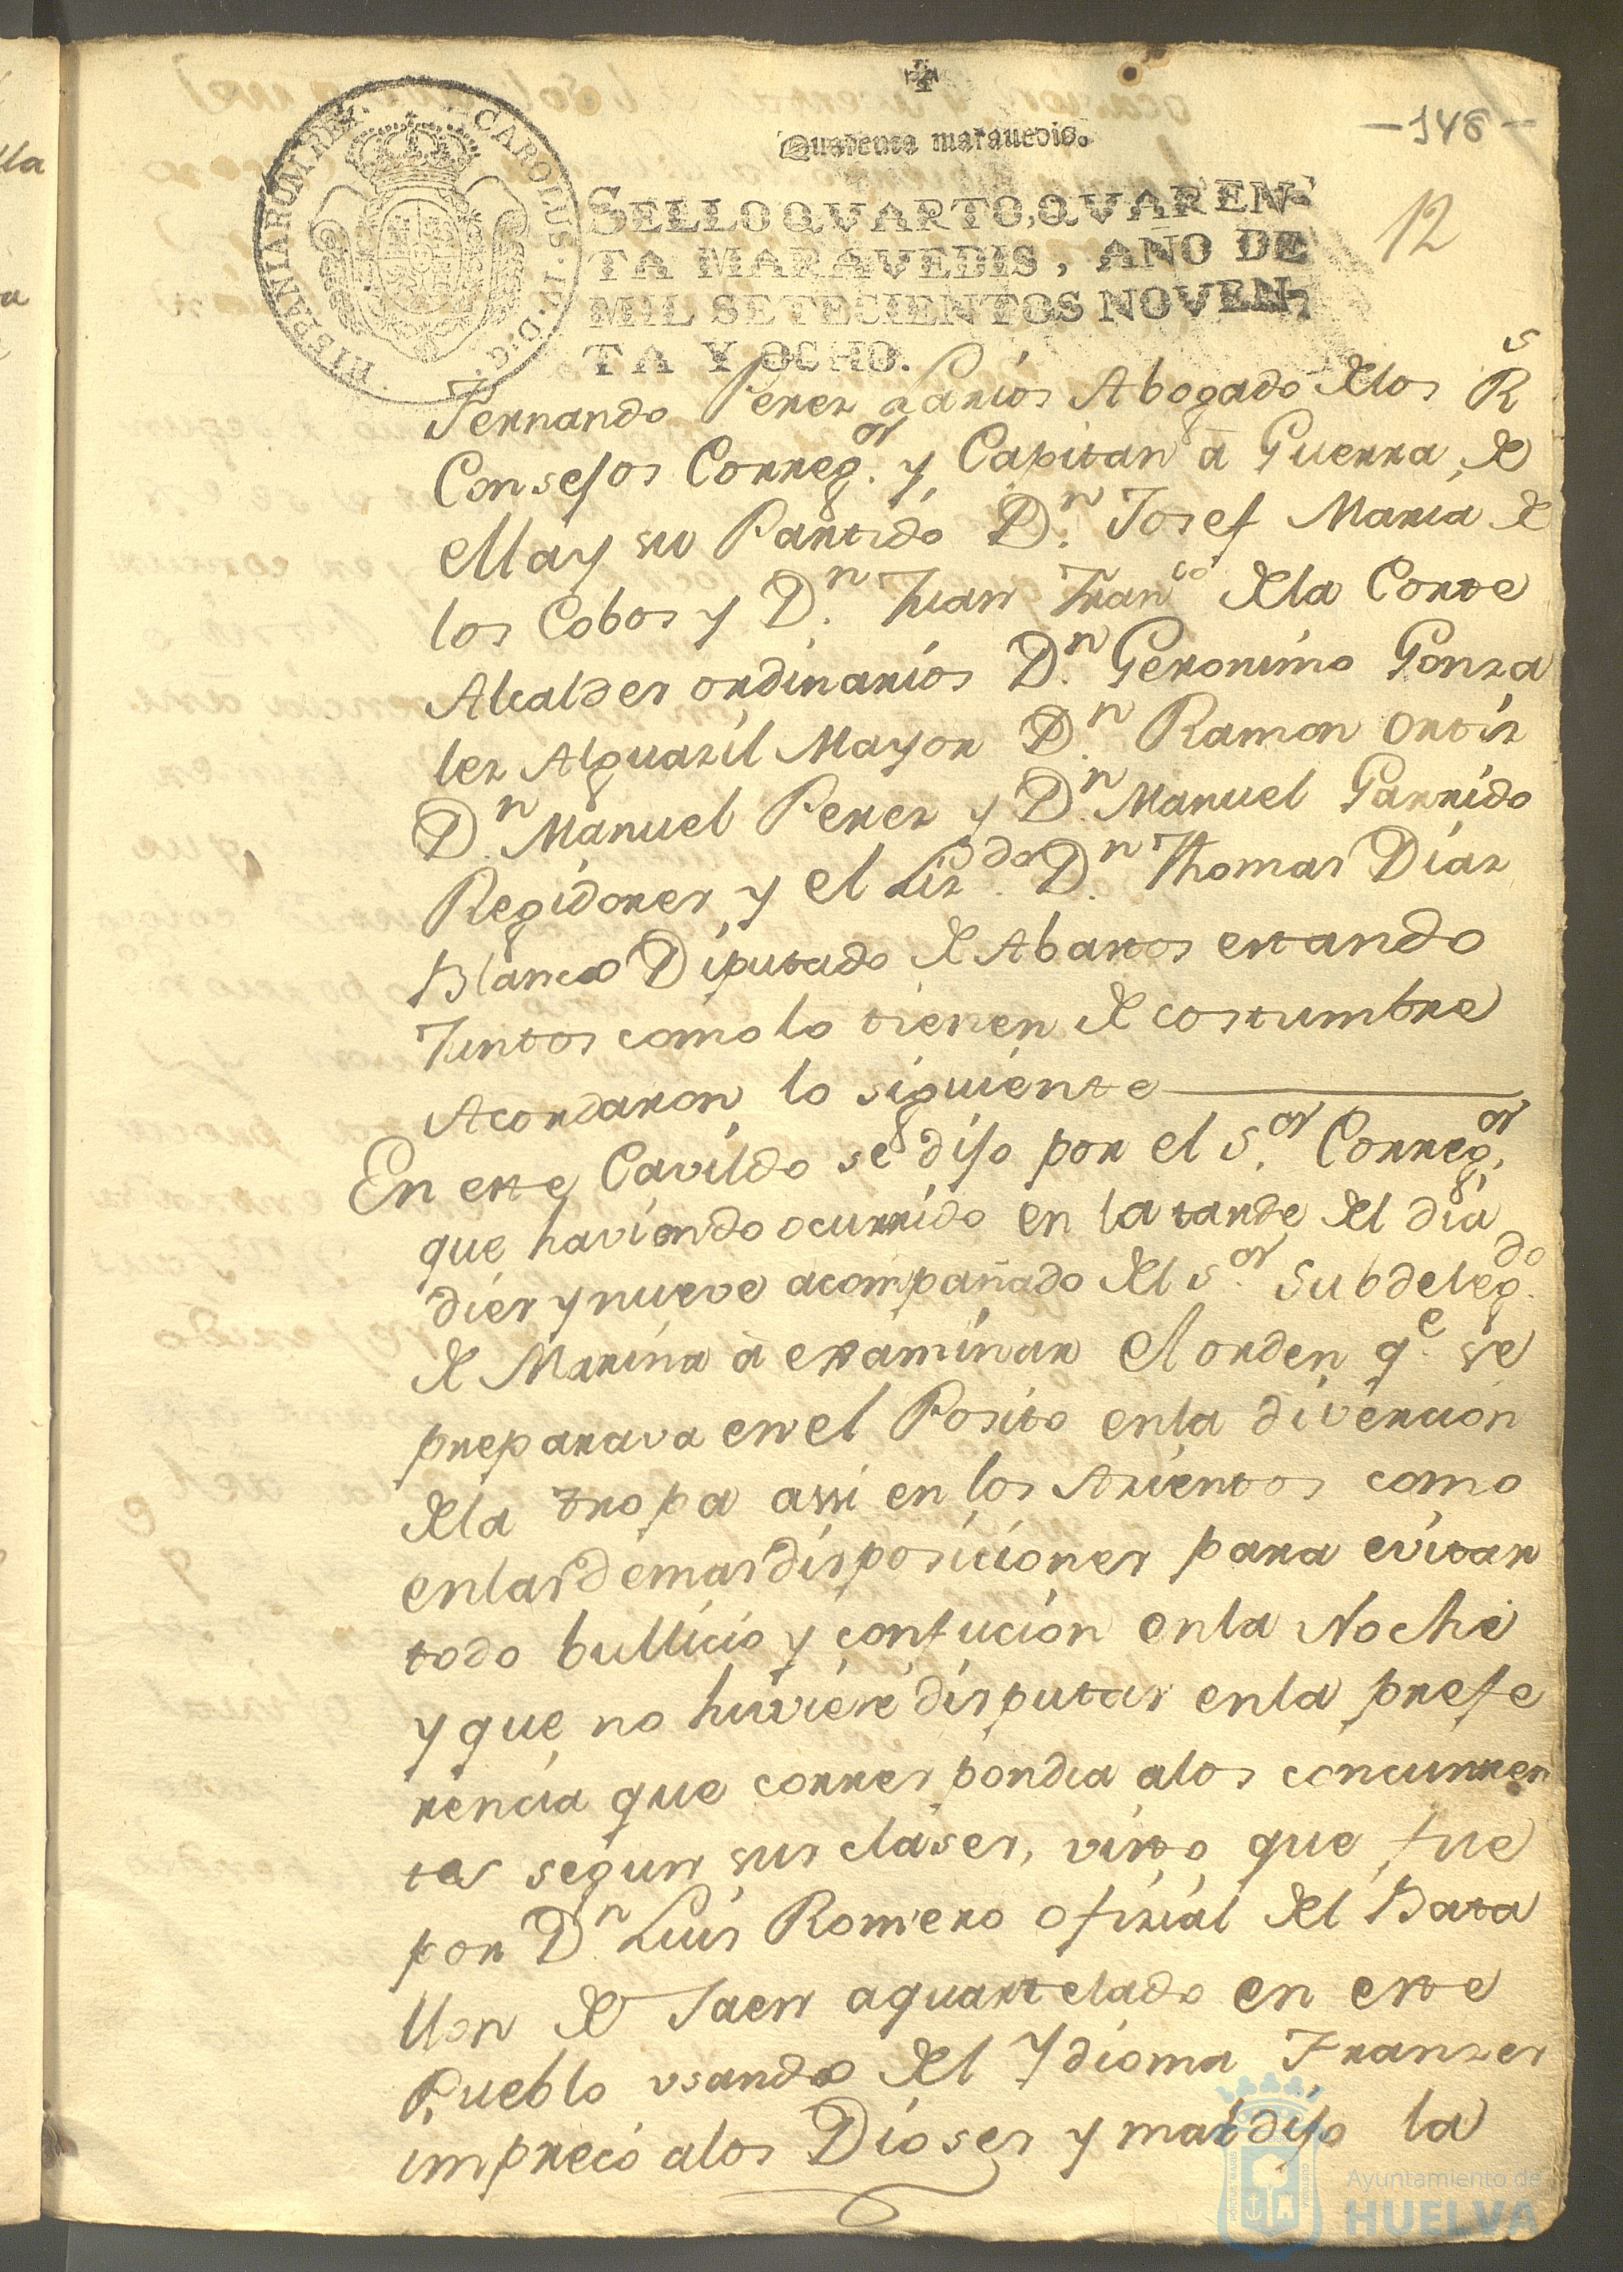 -148-
Quarenta maravedis.
12
HISPANIARUM REX. CAROLUS. IV. D. G.
SELLO QVARTO, QVAREN-
TA MARAVEDIS, AÑO DE
MIL SETECIENTOS NOVEN-
TA Y OCHO.
Fernando Perez Larios Abogado de los R.s
Consejos Correg.or y Capitan à Guerra de
ella y su Partido D.n Josef Maria de
los Cobos y D.n Juan Fran.co de la Corte
Alcaldes ordinarios D.n Geronimo Gonza
lez Alguazil Mayor D.n Ramon Ortiz
D.n Manuel Perez y D.n Manuel Garrido
Regidores y el Liz.do D.n Thomas Diaz
Blanco Diputado de Abastos estando
Juntos como lo tienen de costumbre
Acordaron lo siguiente
En este Cavildo se dijo por el S.or Correg.or
que haviendo ocurrido en la tarde del dia
diez y nueve acompañado del S.or Subdeleg.do
de Marina à examinar el orden q.e se
preparava en el Posito en la divercion
de la tropa assi en los Asientos como
en las demas disposiciones para evitar
todo bullicio y confucion en la Noche
y que no huviere disputas en la prefe
rencia que correspondia a los concurren
tes segun sus clases, visto que fue
por D.n Luis Romero ofizial del Bata
llon de Jaen aquartelado en este
Pueblo usando del Ydioma Franzes
imprecó a los Dioses y maldijo la
Ayuntamiento de
HUELVA